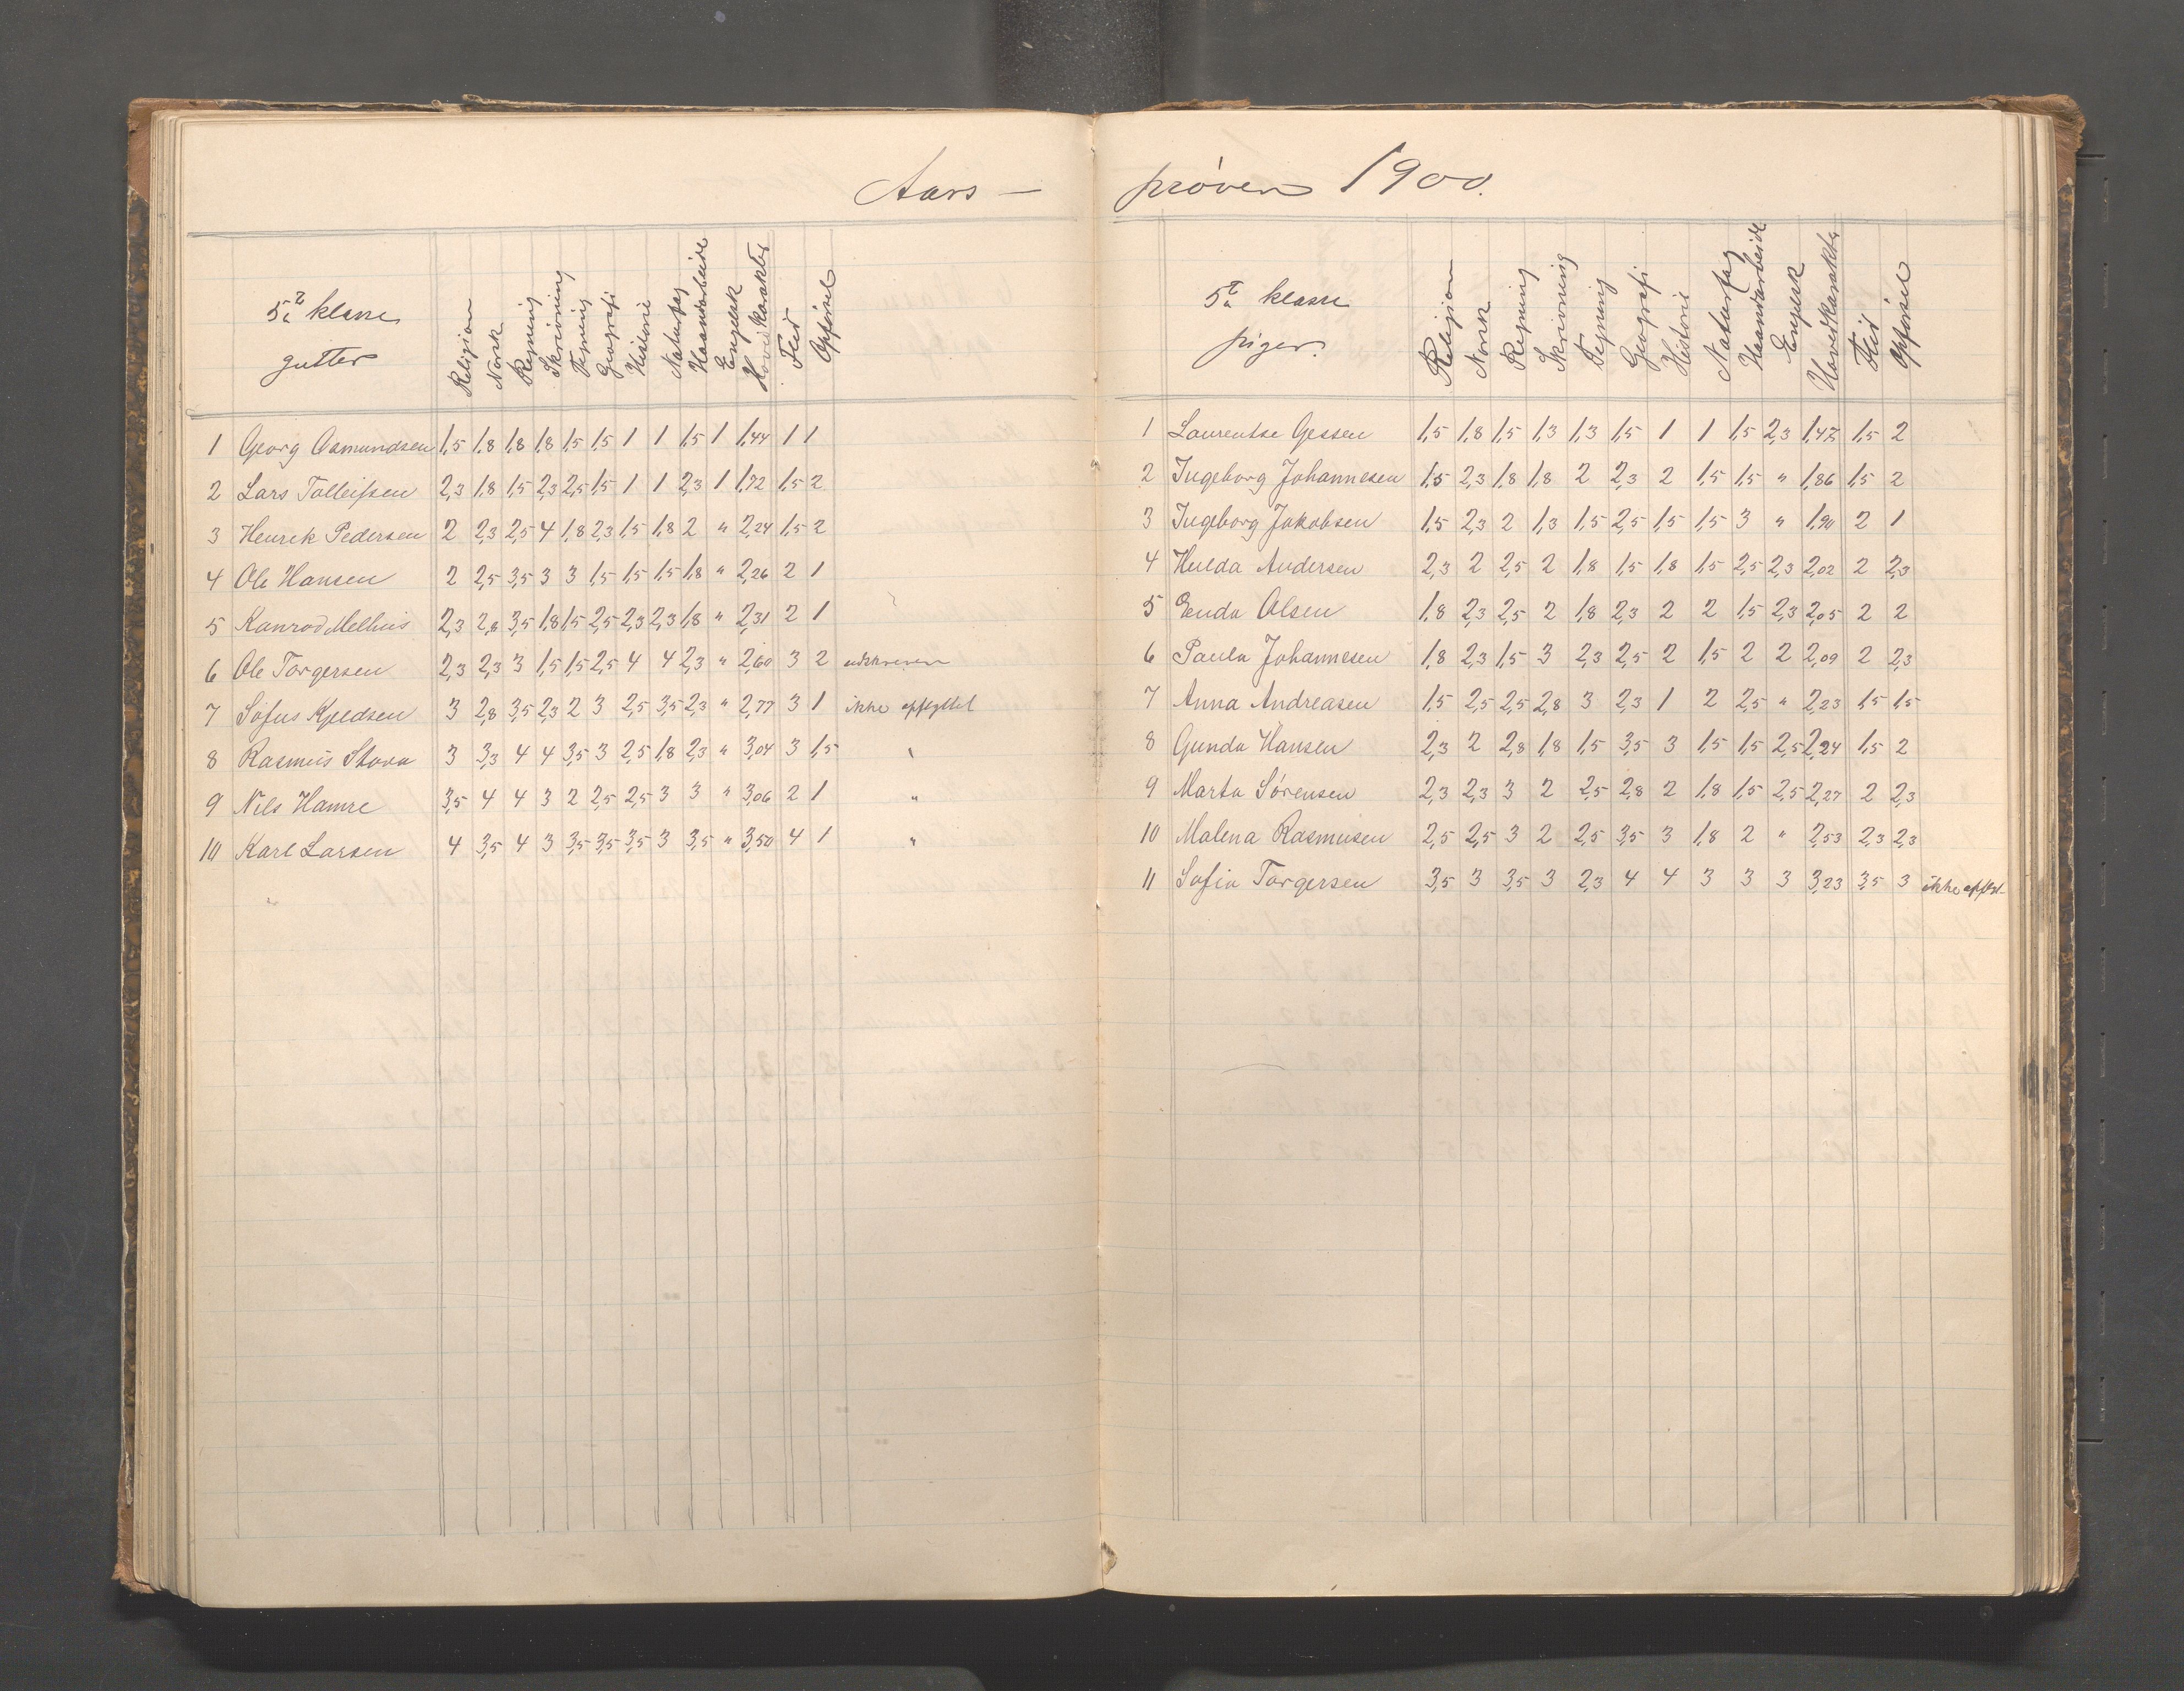 Aars –
5te klasse
gutter
Religion Norsk Regning Skrivning Tegning Geografi Historie Naturfag Haandarbeide Engelsk Hovedkarakter Flid Opførsel
1 Georg Osmundsen 1,5 1,8 1,8 1,8 1,5 1,5 1 1 1,5 1 1,44 1 1
2 Lars Tolleifsen 2,3 1,8 1,5 2,3 2,5 1,5 1 1 2,3 1 1,72 1,5 2
3 Henrek Pedersen 2 2,3 2,5 4 1,8 2,3 1,5 1,8 2 " 2,24 1,5 2
4 Ole Hansen 2 2,5 3,5 3 3 1,5 1,5 1,5 1,8 " 2,26 2 1
5 Konrad Melhus 2,3 2,8 3,5 1,8 1,5 2,5 2,3 2,3 1,8 " 2,31 2 1
6 Ole Torgersen 2,3 2,3 3 1,5 1,5 2,5 4 4 2,3 " 2,60 3 2 udskreven
7 Sofus Kjeldsen 3 2,8 3,5 2,3 2 3 2,5 3,5 2,3 " 2,77 3 1 ikke opflyttet
8 Rasmus Stava 3 3,3 4 4 3,5 3 2,5 1,8 2,3 " 3,04 3 1,5 "
9 Nils Hamre 3,5 4 4 3 2 2,5 2,5 3 3 " 3,06 2 1 "
10 Karl Larsen 4 3,5 4 3 3,5 3,5 3,5 3 3,5 " 3,50 4 1 "
prøven 1900.
5te klasse
piger.
Religion Norsk Regning Skrivning Tegning Geografi Historie Naturfag Haandarbeide Engelsk Hovedkarakter Flid Opførsel
1 Laurentse Gessen 1,5 1,8 1,5 1,3 1,3 1,5 1 1 1,5 2,3 1,47 1,5 2
2 Ingeborg Johannesen 1,5 2,3 1,8 1,8 2 2,3 2 1,5 1,5 " 1,86 1,5 2
3 Ingeborg Jakobsen 1,5 2,3 2 1,3 1,5 2,5 1,5 1,5 3 " 1,90 2 1
4 Hulda Andersen 2,3 2 2,5 2 1,8 1,5 1,8 1,5 2,5 2,3 2,02 2 2,3
5 Enda Olsen 1,8 2,3 2,5 2 1,8 2,3 2 2 1,5 2,3 2,05 2 2
6 Paula Johannesen 1,8 2,3 1,5 3 2,3 2,5 2 1,5 2 2 2,09 2 2,3
7 Anna Andreasen 1,5 2,5 2,5 2,8 3 2,3 1 2 2,5 " 2,23 1,5 1,5
8 Gunda Hansen 2,3 2 2,8 1,8 1,5 3,5 3 1,5 1,5 2,5 2,24 1,5 2
9 Marta Sørensen 2,3 2,3 3 2 2,5 2,8 2 1,8 1,5 2,5 2,27 2 2,3
10 Malena Rasmusen 2,5 2,5 3 2 2,5 3,5 3 1,8 2 " 2,53 2,3 2,3
11 Sofia Torgersen 3,5 3 3,5 3 2,3 4 4 3 3 3 3,23 3,5 3 ikke opflyt.